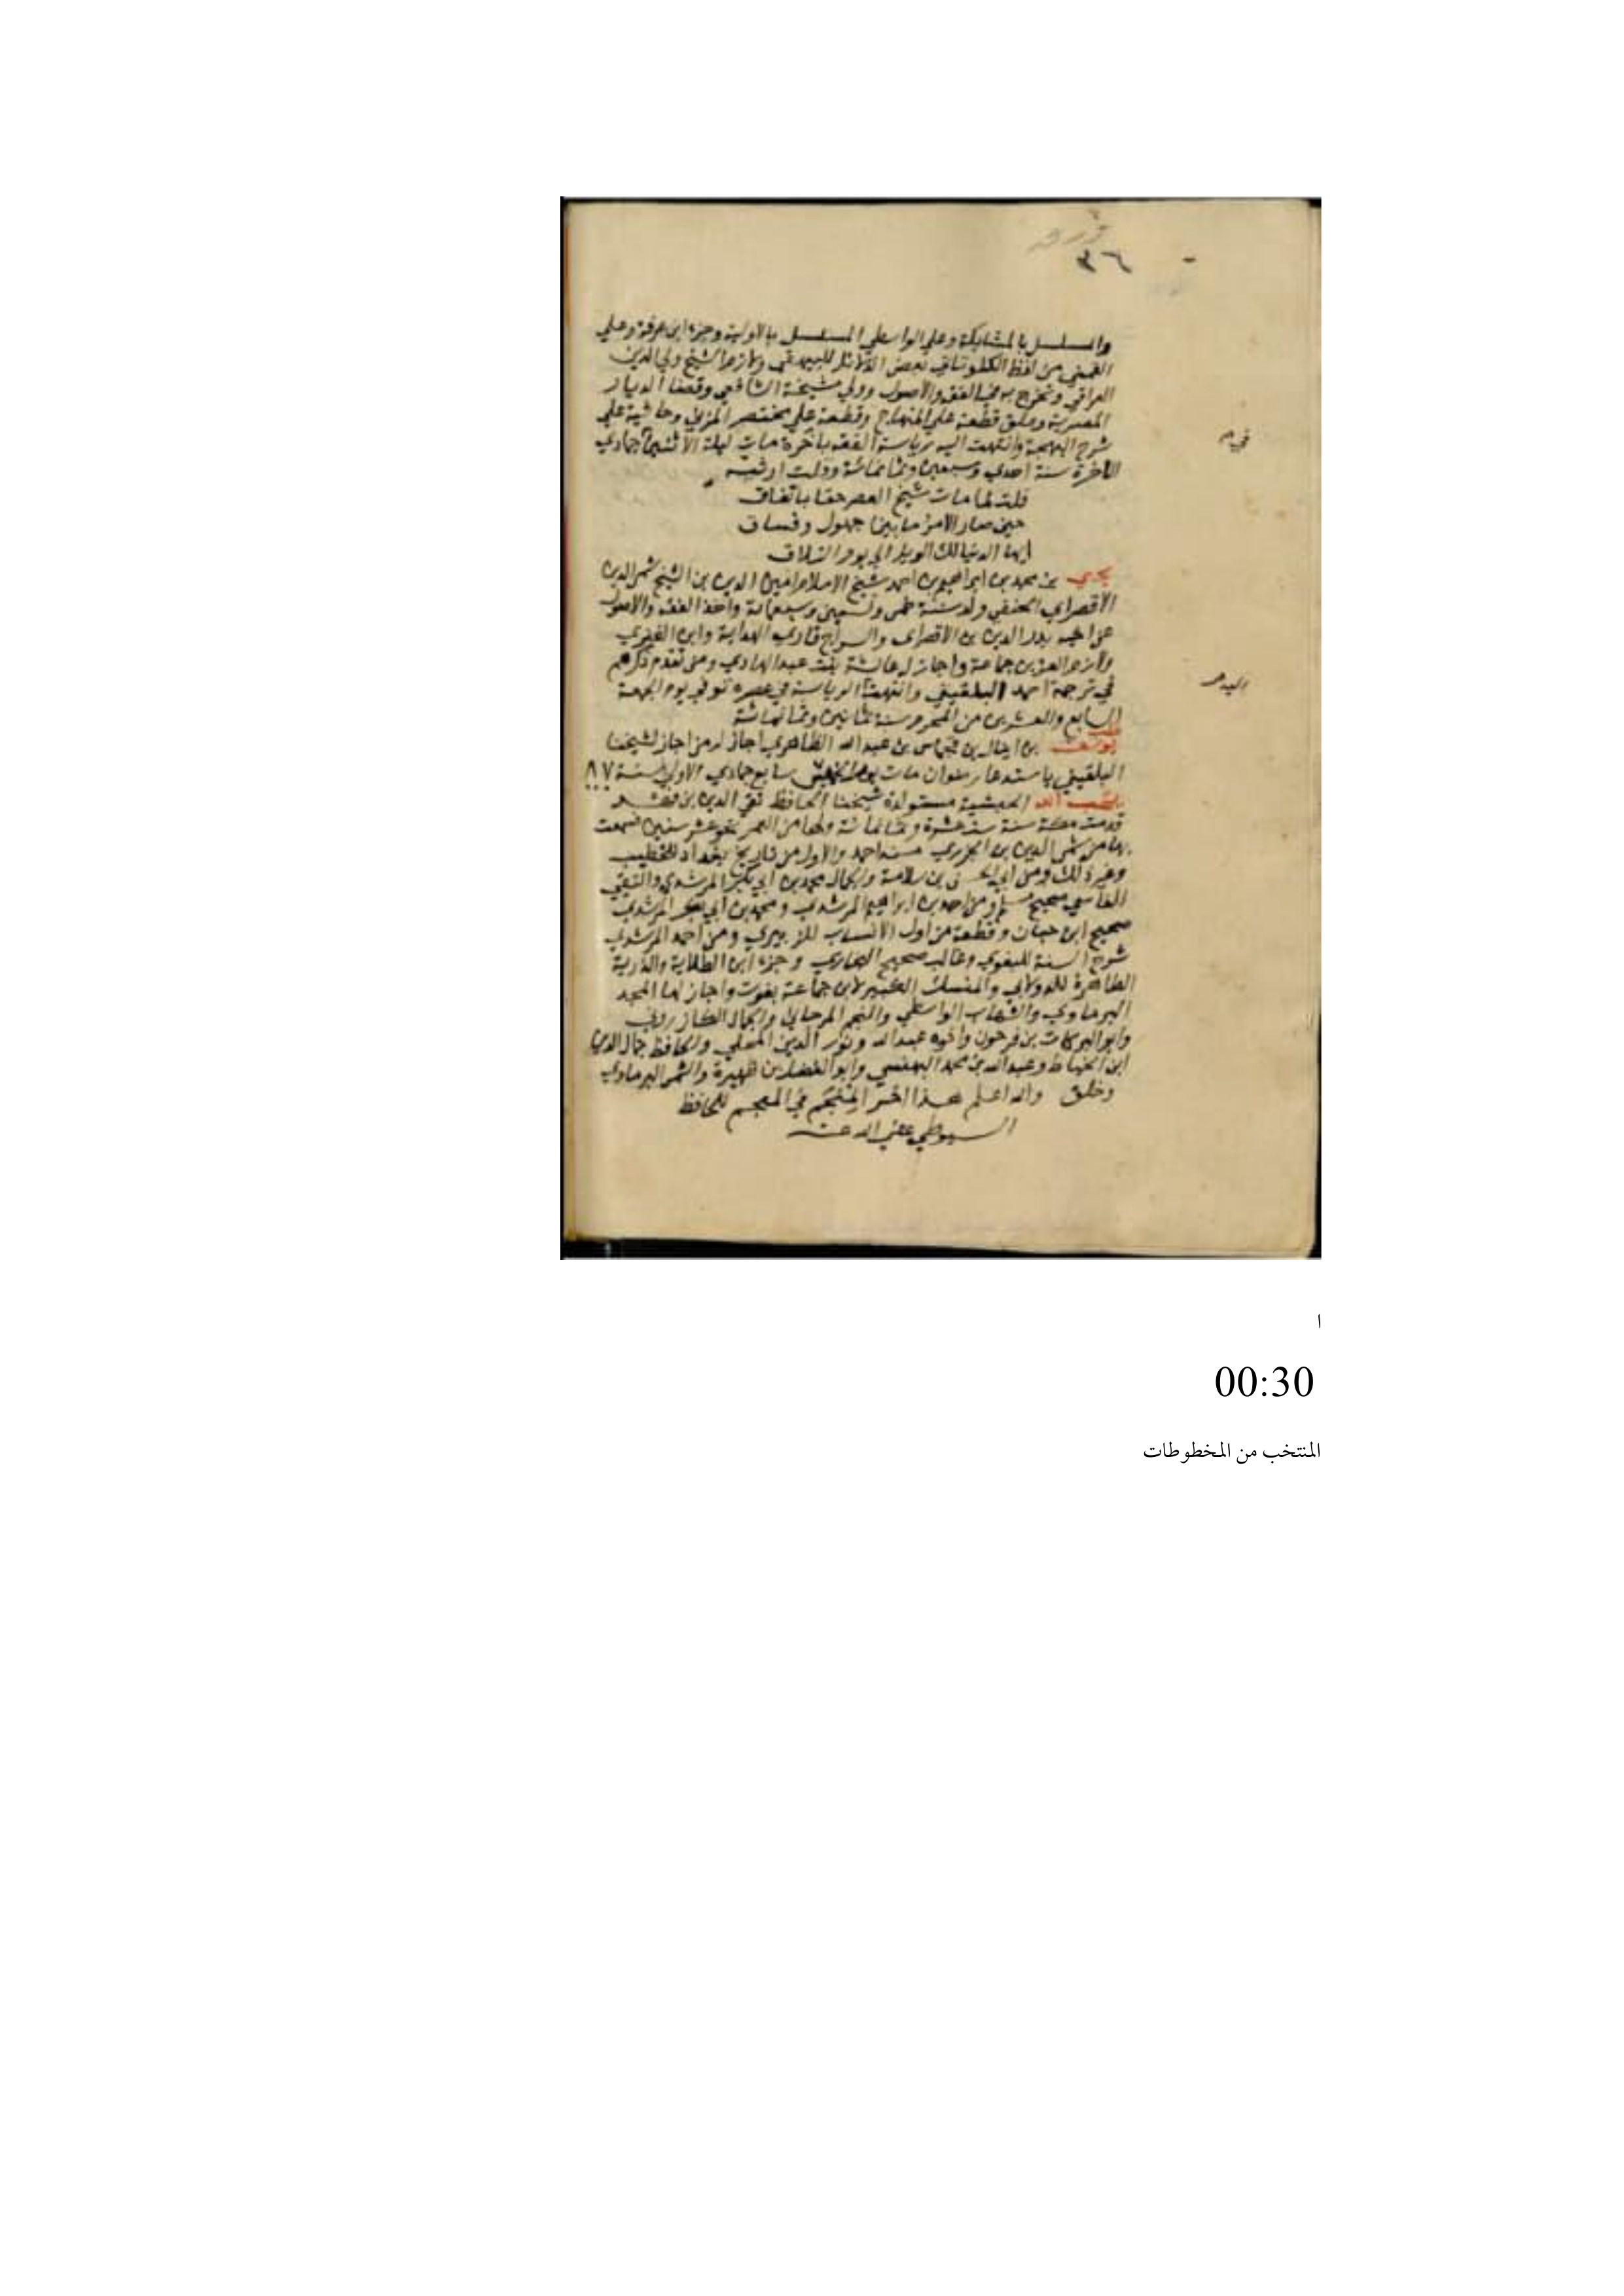 ٣٦
والمسلسل بالمشابكة وعلي الواسطي المسلسل بالاولية وجزء ابن عرفة وعلي
القمني من لفظ الكلوتاتي بعض الدلائل للبيهقي ولازم الشيخ ولي الدين
العراقي وتخرج به في الفقه والاصول وولي مشيخة الشافعي وقضا الديار
المصرية وعلق قطعة علي المنهاج وقطعة علي مختصر المزني وحاشية علي
شرح البهجة وانتهت اليه رياسة الفقه باخرة مات ليلة الاثنين جمادي
الاخرة سنة احدي وسبعين وثمانمائة وقلت ارثيه
قلت لما مات شيخ العصر حقا باتفاق
حين صار الامر ما بين جهول وفساق
ايها الدنيا لك الويل الي يوم التلاق
يحيي بن محمد بن ابراهيم بن احمد شيخ الاسلام امين الدين بن الشيخ شمس الدين
الاقصراي الحنفي ولد سنة خمس وتسعين وسبعمائة واخذ الفقه والاصول
عن اخيه بدر الدين بن الاقصراي والسراج قاري الهداية وابن الفنري
ولازم العز بن جماعة واجاز له عائشة بنت عبد الهادي ومن تقدم ذكرهم
في ترجمة احمد البلقيني وانتهت الرياسة في عصره توفي يوم الجمعة
السابع والعشرين من المحرم سنة ثمانين وثمانمائة
يوسف بن اينال بن قجماس بن عبد الله الظاهري اجاز له من اجاز لشيخنا
البلقيني باستدعا رضوان مات يوم الخميس سابع جمادي الاولي سنة
الحبشية مستولدة شيخنا الحافظ تقي الدين بن فهد
قدمت مكة سنة ست عشرة وثمانمائة ولها من العمر نحو عشر سنين فسمعت
بها من شمس الدين بن الجزري مسند احمد والاول من تاريخ بغداد للخطيب
وغير ذلك ومن ابي الحسن بن سلامة والجمال محمد بن ابي بكر المرشدي والتقي
الفاسي صحيح مسلم ومن احمد بن ابراهيم المرشدي ومحمد بن ابي بكر المرشدي
صحيح ابن حبان وقطعة من اول الانساب للزبيري ومن احمد المرشدي
شرح السنة للبغوي وغالب صحيح البخاري وجزء ابن الطلاية والذرية
الطاهرة للدولابي والمنسك الكبير لابن جماعة بفوت واجاز لها المجد
البرماوي والشهاب الواسطي والنجم المرجاني والجمال الكازروني
وابو البركات بن فرحون واخوه عبد الله ونور الدين المحلي والحافظ جمال الدين
ابن الخياط وعبد الله بن محمد البهنسي وابو الفضل بن ظهيرة والشمس البرماوي
وخلق والله اعلم هذا اخر المنجم في المعجم للحافظ
السيوطي عفي الله عنه
ا
00:30
المنتخب من المخطوطات